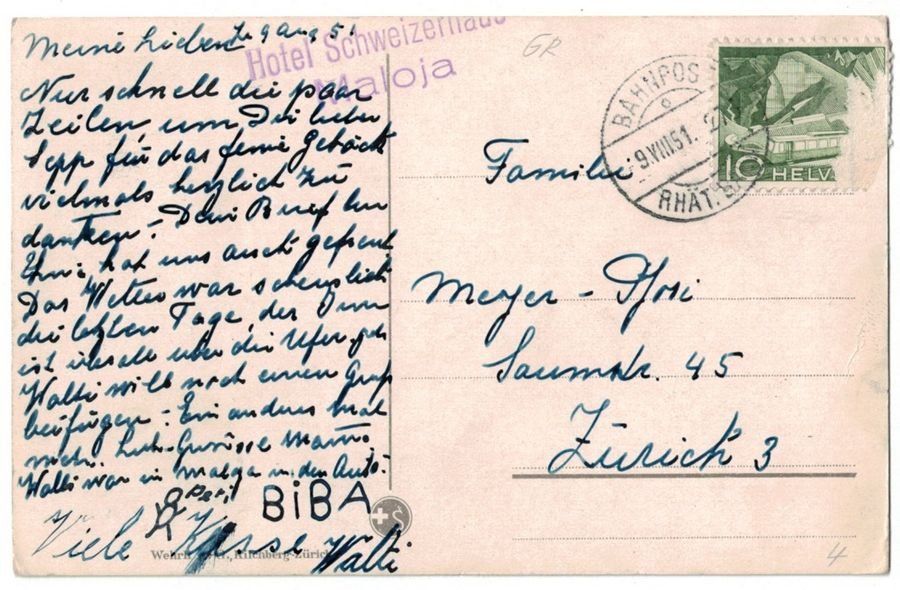 Meine Lieben 9 Aug 51
Hotel Schweizerhaus
Maloja
Nur schnell die paar
Zeilen, um Dir lieber
Sepp für das feine Gebäck
vielmals herzlich zu
danken! Dein Brief
hat uns auch gefreut
Das Wetter war scheusslich
die letzten Tage, der Inn
ist überall über die Ufer
Walti will noch einen Gruss
beifügen - Ein anders mal
mehr. Grüsse Mam
Walti war in Maloja in den Auto
BiBA
Viele Küsse Walti
GR
BAHNPOS
9.VIII.51.
RHÄT.
10 HELV.
Familie
Meyer -
Saumstr. 45
Zürich 3
Kilchberg-Zürich
4